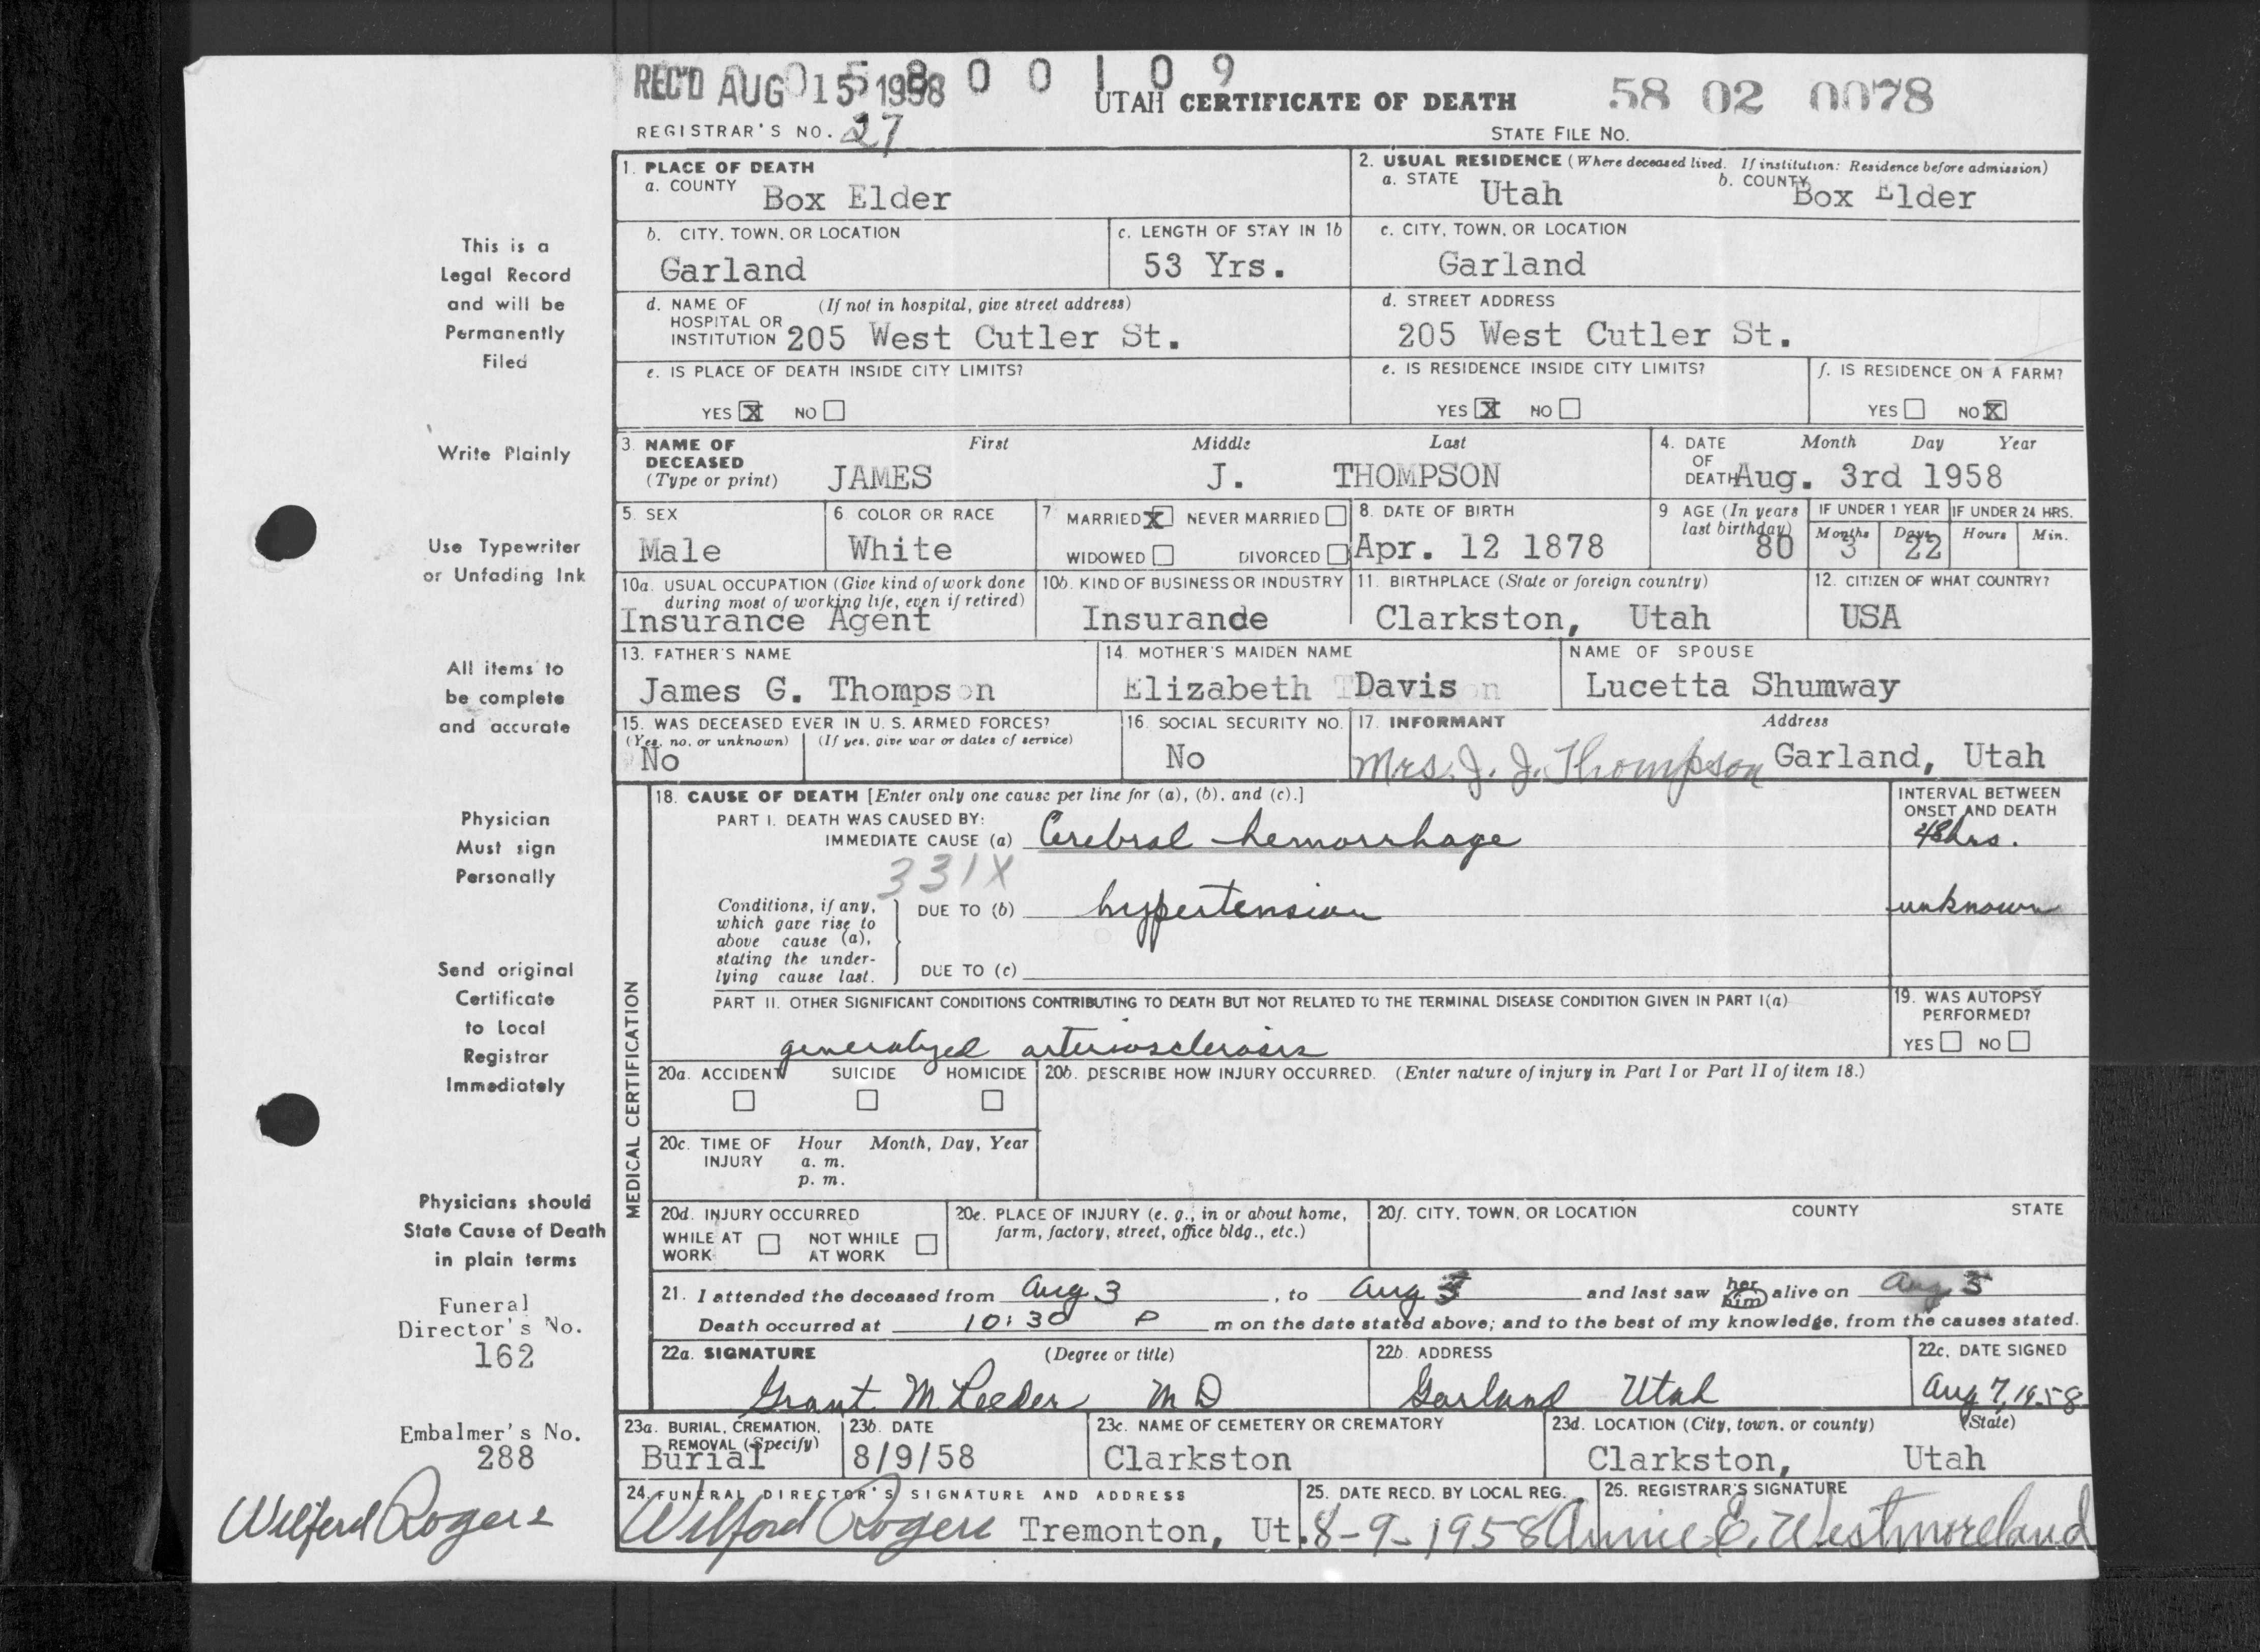 REC'D AUG 15 1958 0 0 1 0 9
UTAH CERTIFICATE OF DEATH 58 02 0078
REGISTRAR'S NO. 27 STATE FILE NO.
1. PLACE OF DEATH
a. COUNTY Box Elder
2. USUAL RESIDENCE (Where deceased lived. If institution: Residence before admission)
a. STATE Utah b. COUNTY Box Elder
b. CITY, TOWN, OR LOCATION Garland
c. LENGTH OF STAY IN 1b 53 Yrs.
c. CITY, TOWN, OR LOCATION Garland
d. NAME OF HOSPITAL OR INSTITUTION (If not in hospital, give street address) 205 West Cutler St.
d. STREET ADDRESS 205 West Cutler St.
e. IS PLACE OF DEATH INSIDE CITY LIMITS?
YES X NO
e. IS RESIDENCE INSIDE CITY LIMITS?
YES X NO
f. IS RESIDENCE ON A FARM?
YES NO X
3. NAME OF DECEASED (Type or print) First Middle Last
JAMES J. THOMPSON
4. DATE OF DEATH Month Day Year
Aug. 3rd 1958
5. SEX Male
6 COLOR OR RACE White
7 MARRIED X NEVER MARRIED
WIDOWED DIVORCED
8. DATE OF BIRTH Apr. 12 1878
9 AGE (In years last birthday) 80
IF UNDER 1 YEAR Months 3 Days 22
IF UNDER 24 HRS. Hours Min.
10a. USUAL OCCUPATION (Give kind of work done during most of working life, even if retired)
Insurance Agent
10b. KIND OF BUSINESS OR INDUSTRY
Insurande
11. BIRTHPLACE (State or foreign country)
Clarkston, Utah
12. CITIZEN OF WHAT COUNTRY?
USA
13. FATHER'S NAME
James G. Thompson
14. MOTHER'S MAIDEN NAME
Elizabeth Davis
NAME OF SPOUSE
Lucetta Shumway
15. WAS DECEASED EVER IN U. S. ARMED FORCES?
(Yes, no, or unknown) (If yes, give war or dates of service)
No
16. SOCIAL SECURITY NO.
No
17. INFORMANT Address
Mrs. J. J. Thompson Garland, Utah
MEDICAL CERTIFICATION
18. CAUSE OF DEATH [Enter only one cause per line for (a), (b), and (c).]
INTERVAL BETWEEN ONSET AND DEATH
PART I. DEATH WAS CAUSED BY:
IMMEDIATE CAUSE (a) Cerebral hemorrhage 48hrs.
331X
Conditions, if any, which gave rise to above cause (a), stating the underlying cause last.
DUE TO (b) hypertension unknown
DUE TO (c)
PART II. OTHER SIGNIFICANT CONDITIONS CONTRIBUTING TO DEATH BUT NOT RELATED TO THE TERMINAL DISEASE CONDITION GIVEN IN PART I(a)
generalized arteriosclerosis
19. WAS AUTOPSY PERFORMED?
YES NO
20a. ACCIDENT SUICIDE HOMICIDE
20b. DESCRIBE HOW INJURY OCCURRED. (Enter nature of injury in Part I or Part II of item 18.)
20c. TIME OF INJURY Hour Month, Day, Year
a. m.
p. m.
20d. INJURY OCCURRED
WHILE AT WORK NOT WHILE AT WORK
20e. PLACE OF INJURY (e. g., in or about home, farm, factory, street, office bldg., etc.)
20f. CITY, TOWN, OR LOCATION COUNTY STATE
21. I attended the deceased from Aug 3, to Aug and last saw her him alive on Aug
Death occurred at 10:30 P m on the date stated above; and to the best of my knowledge, from the causes stated.
22a. SIGNATURE (Degree or title)
Grant M Reeder M D
22b. ADDRESS
Garland Utah
22c. DATE SIGNED
Aug 7, 1958
23a. BURIAL, CREMATION, REMOVAL (Specify)
Burial
23b. DATE
8/9/58
23c. NAME OF CEMETERY OR CREMATORY
Clarkston
23d. LOCATION (City, town, or county) (State)
Clarkston, Utah
24. FUNERAL DIRECTOR'S SIGNATURE AND ADDRESS
Wilford Rogers Tremonton, Ut.
25. DATE RECD. BY LOCAL REG.
8-9-1958
26. REGISTRAR'S SIGNATURE
Annie E. Westmoreland
This is a
Legal Record
and will be
Permanently
Filed
Write Plainly
Use Typewriter
or Unfading Ink
All items to
be complete
and accurate
Physician
Must sign
Personally
Send original
Certificate
to Local
Registrar
Immediately
Physicians should
State Cause of Death
in plain terms
Funeral
Director's No.
162
Embalmer's No.
288
Wilford Rogers